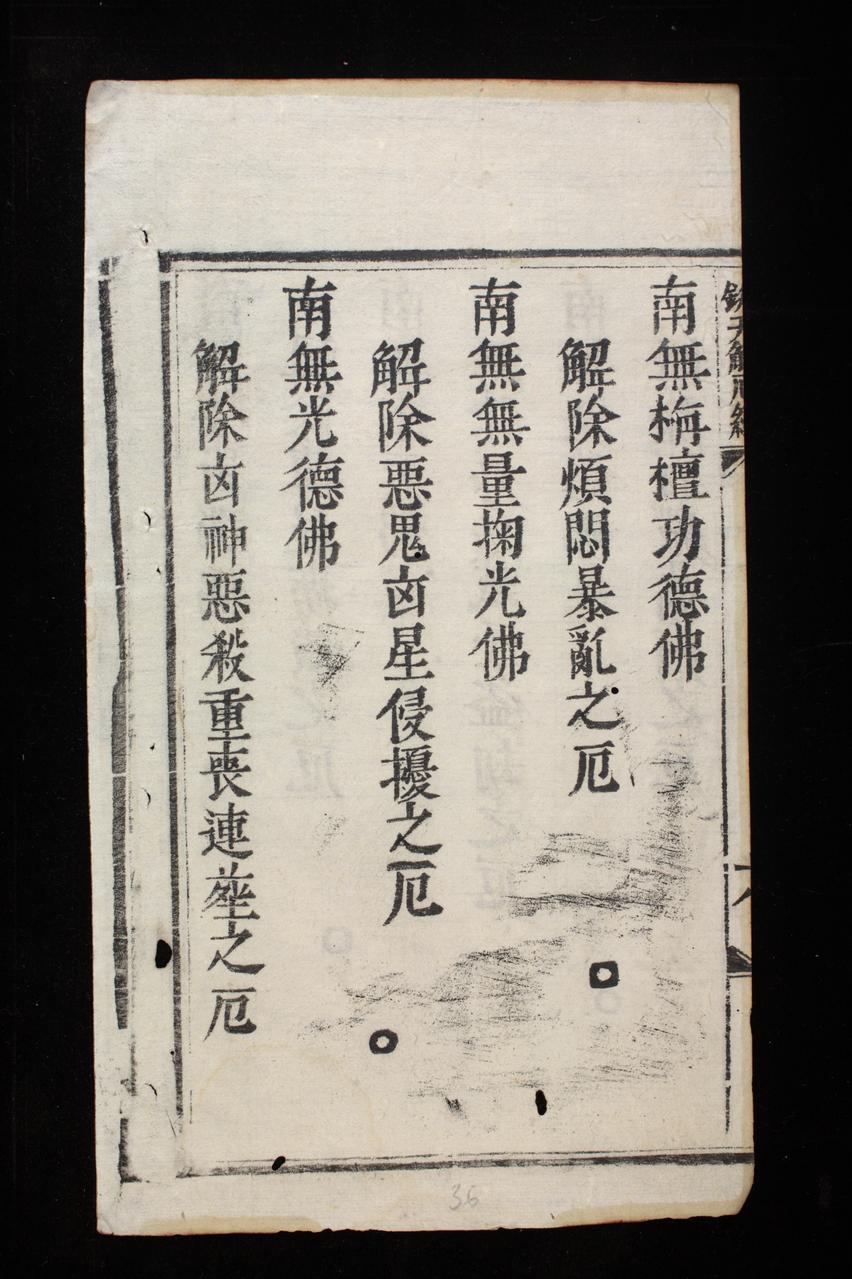 解厄經
南無栴檀功德佛
解除煩悶暴亂之厄
南無無量掬光佛
解除惡鬼㐫星侵擾之厄
南無光德佛
解除㐫神惡殺重喪連塟之厄
36